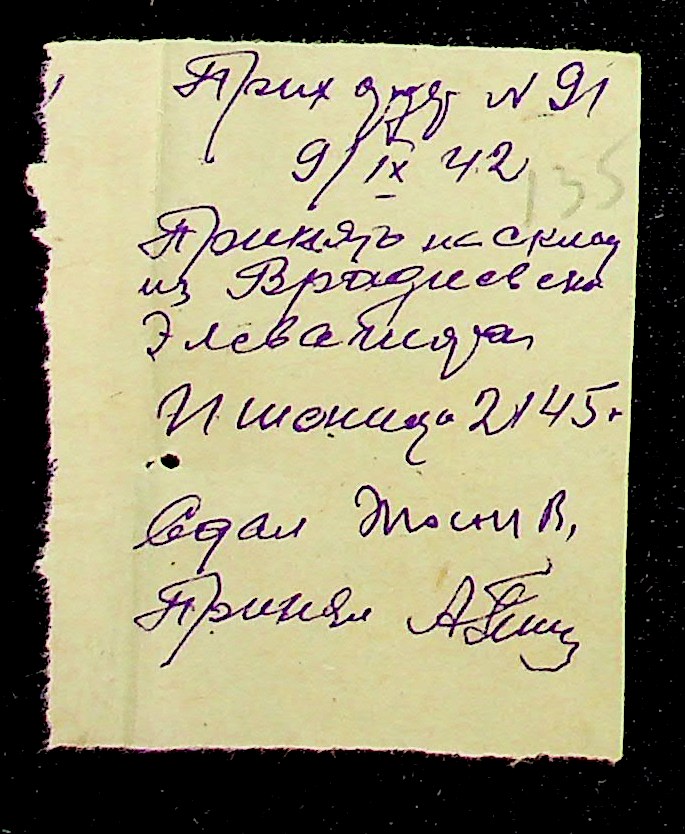 Прих ордер № 91
9/IX 42
135
Принять на склад
из Врадиевско
Элеватора
Пшеница 2145
Сдал
Принял